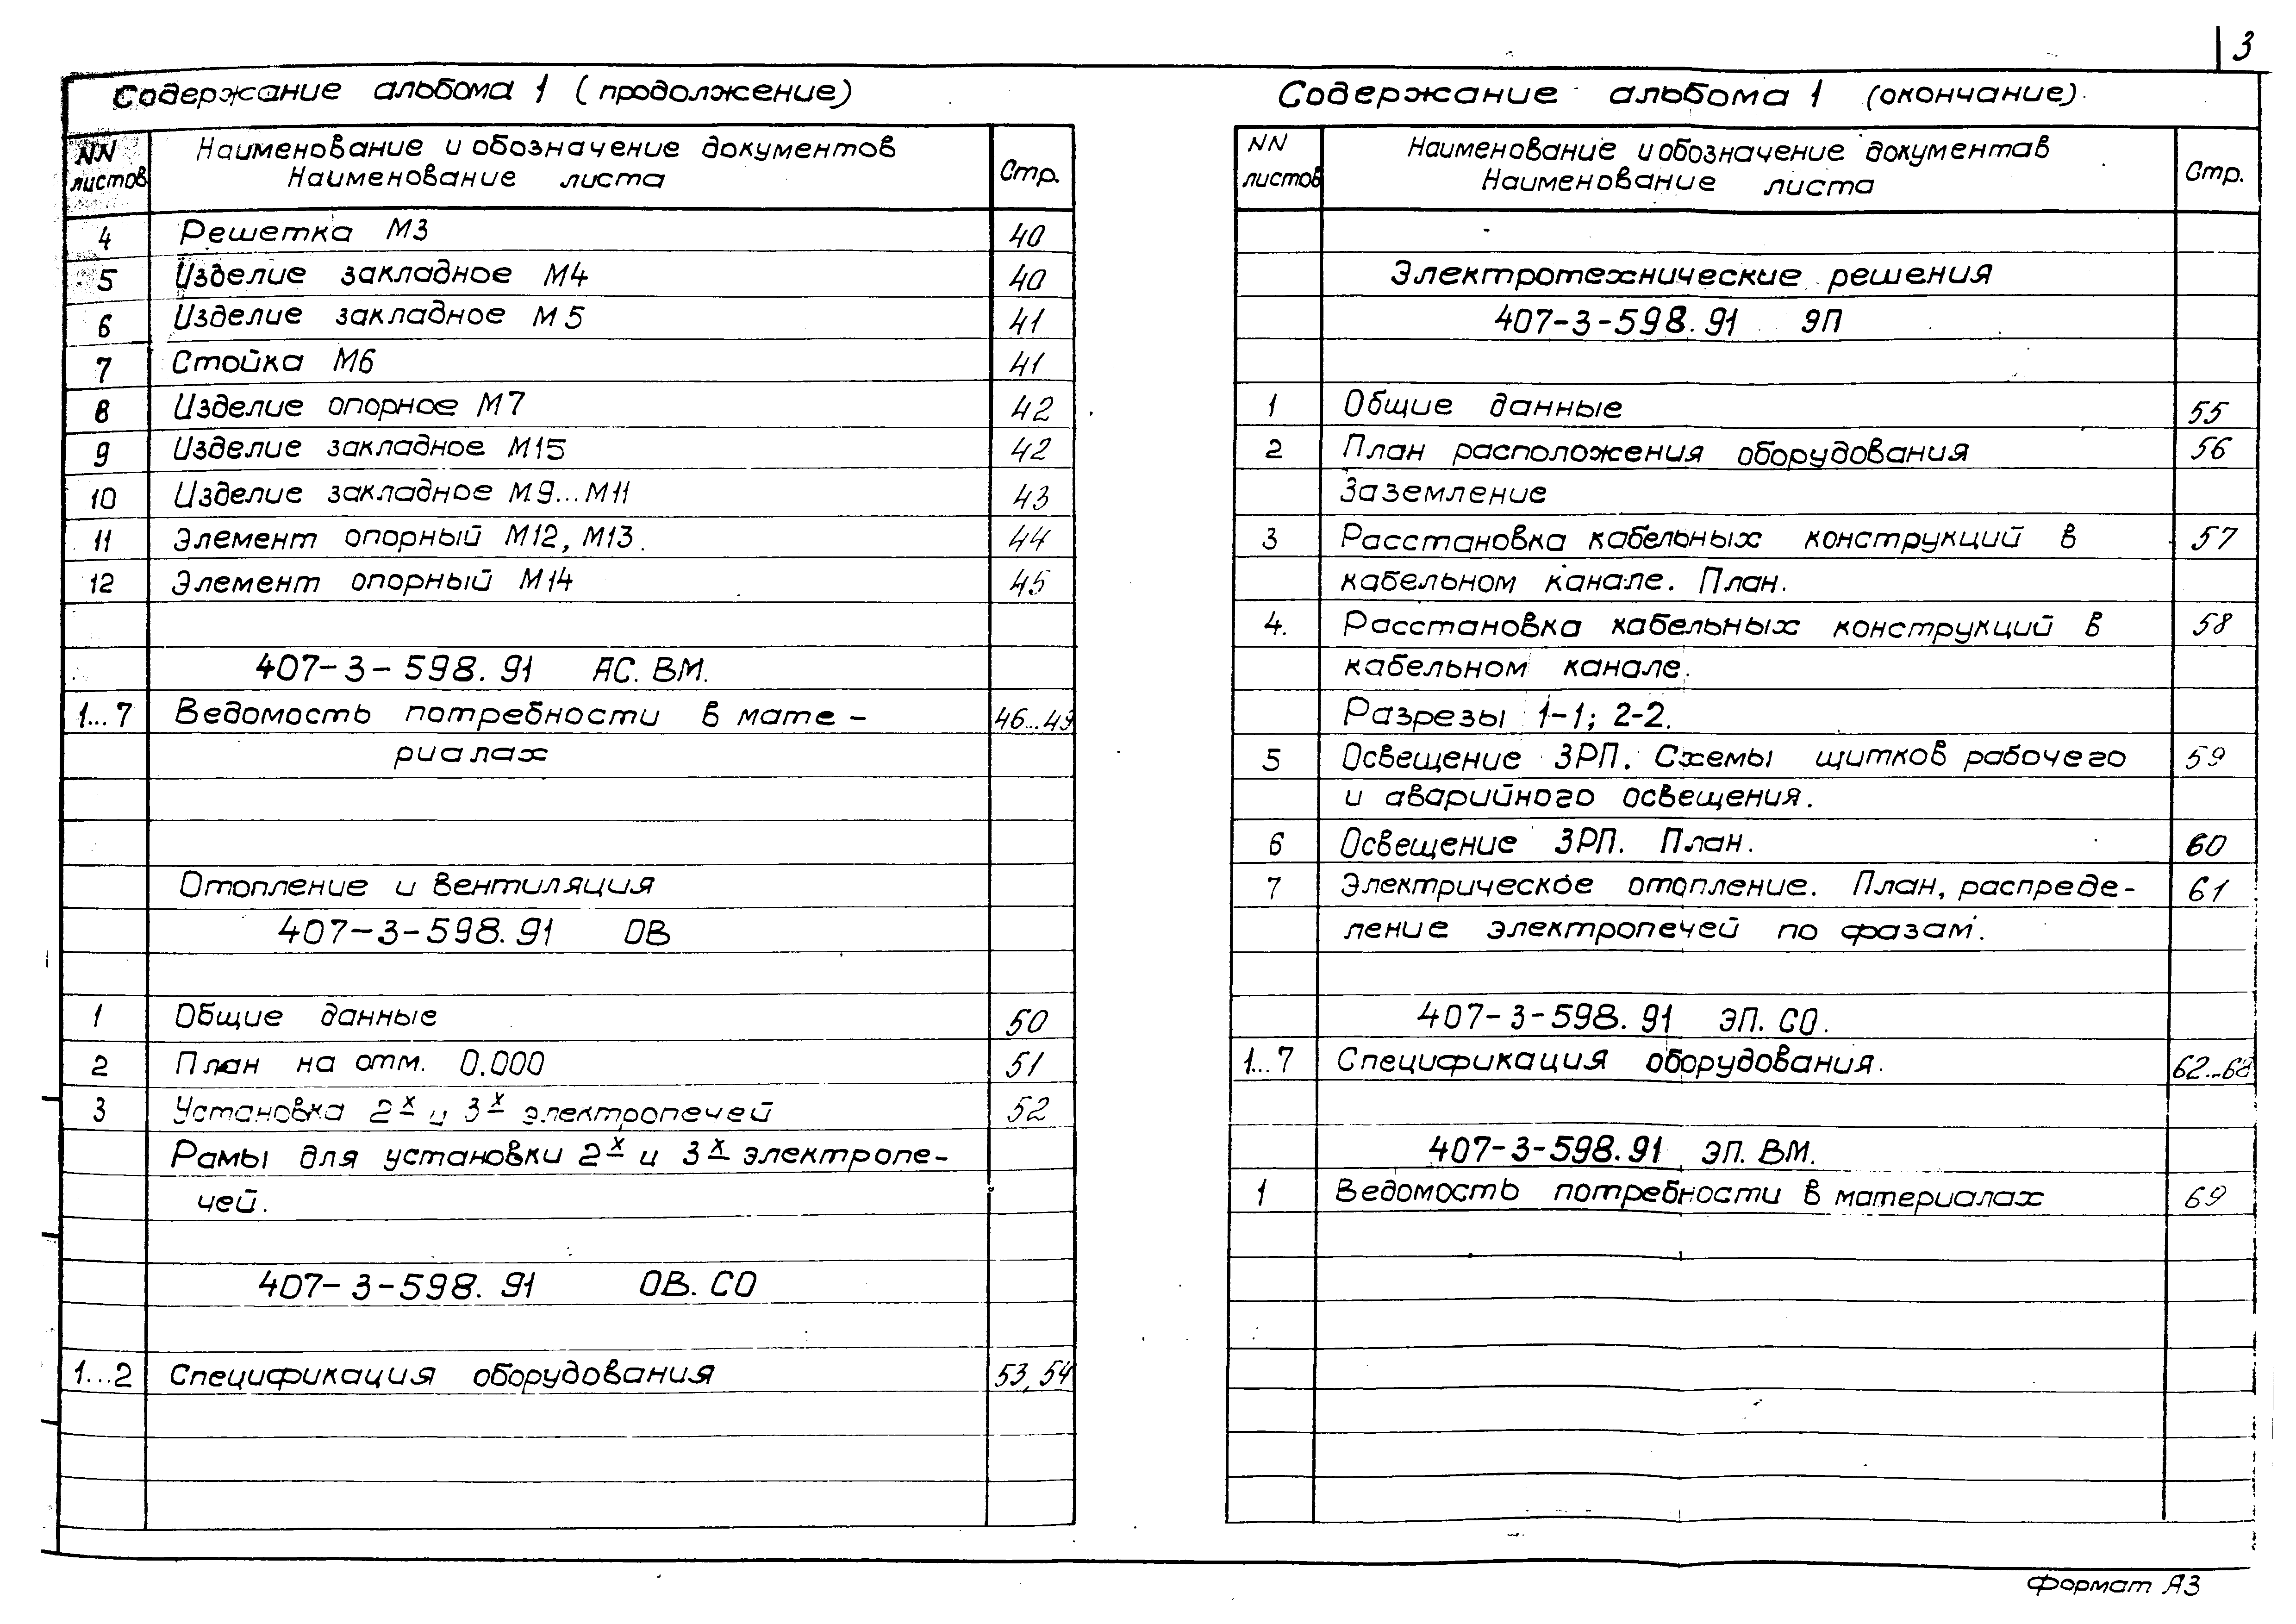 3
Содержание альбома 1 (продолжение)
NN листов
Наименование и обозначение документов
Наименование листа
Стр.
4 Решетка М3 40
5 Изделие закладное М4 40
6 Изделие закладное М5 41
7 Стойка М6 41
8 Изделие опорное М7 42
9 Изделие закладное М15 42
10 Изделие закладное М9...М11 43
11 Элемент опорный М12, М13. 44
12 Элемент опорный М14 45
407-3-598.91 АС.ВМ.
1...7 Ведомость потребности в мате- 46...49
риалах
Отопление и вентиляция
407-3-598.91 ОВ
1 Общие данные 50
2 План на отм. 0.000 51
3 Установка 2х и 3х электропечей 52
Рамы для установки 2х и 3х электропе-
чей.
407-3-598.91 ОВ.СО
1...2 Спецификация оборудования 53,54
Содержание альбома 1 (окончание).
NN листов
Наименование и обозначение документав
Наименование листа
Стр.
Электротехнические решения
407-3-598.91 ЭП
1 Общие данные 55
2 План расположения оборудования 56
Заземление
3 Расстановка кабельных конструкций в 57
кабельном канале. План.
4. Расстановка кабельных конструкций в 58
кабельном канале.
Разрезы 1-1; 2-2.
5 Освещение ЗРП. Схемы щитков рабочего 59
и аварийного освещения.
6 Освещение ЗРП. План. 60
7 Электрическое отопление. План, распреде- 61
ление электропечей по фазам.
407-3-598.91 ЭП.СО.
1...7 Спецификация оборудования. 62...68
407-3-598.91 ЭП.ВМ.
1 Ведомость потребности в материалах 69
Формат А3